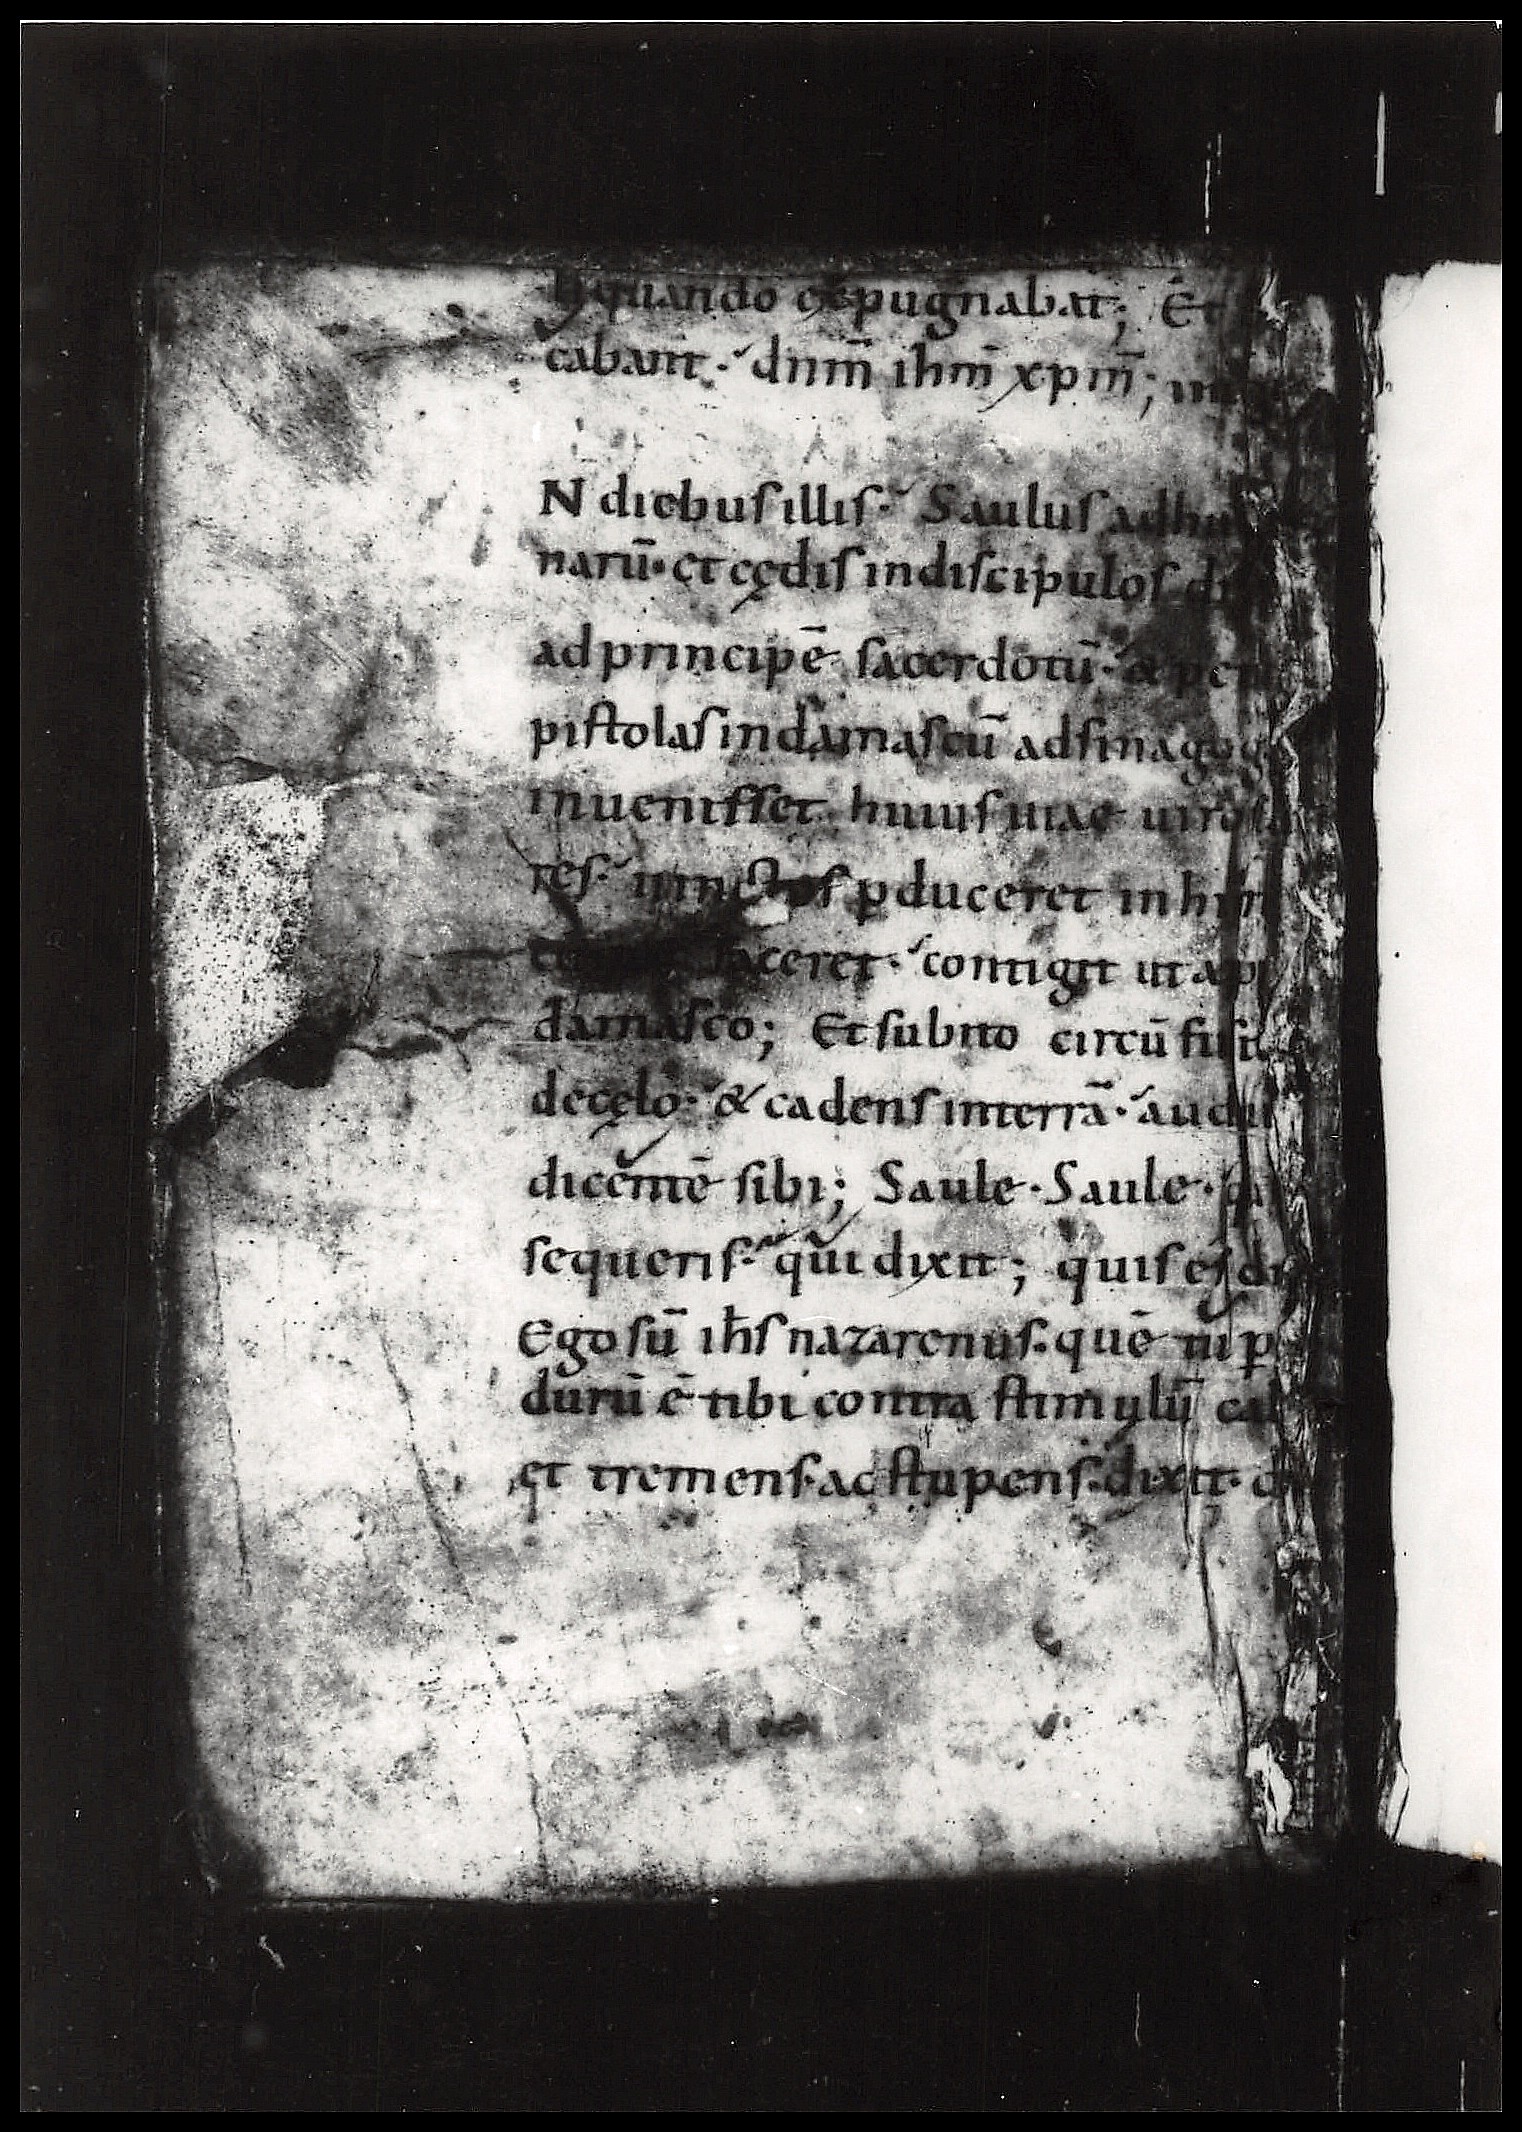 quando expugnabat; Et
cabant. dnm̄ ihm̄ xpm̄;
N diebus illis. Saulus adhu
narū. et cędis indiscipulos
ad principē sacerdotū. &
pistolas in damascū ad sinagog
inuenisset. huius uiae uiros
res. uinctos pduceret in
faceret. contigit ut
damasco; Et subito circū fusit
decęlo. & cadens interrā. audi
dicentē sibi; Saule. Saule.
sequeris. qui dixit; quis es
Ego sū ihs nazarenus. quē tu p
durū ē tibi contra stimulū cal
et tremens. ac stupens. dixit.